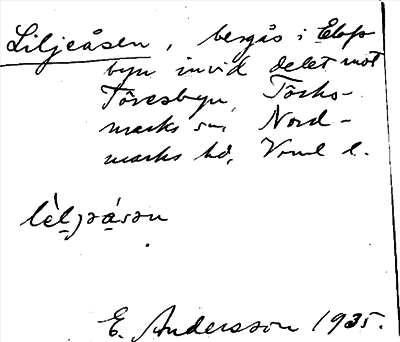 Liljeåsen, bergås i Elofs-
byn invid delet mot
Töresbyn, Töcks-
marks sn, Nord-
marks hd, Vrml l.
lèljəåsən
E. Andersson 1935.